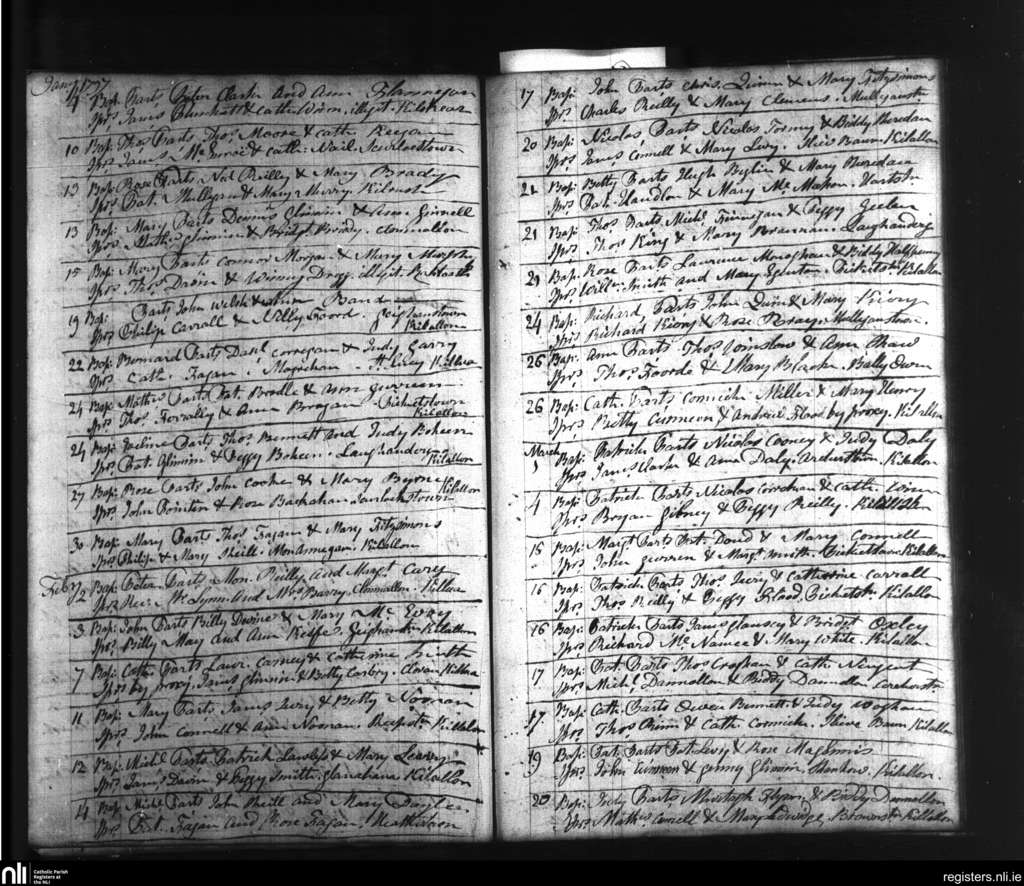 Jany. 1797
4 Bap: Parts Peter Clarke and Ann Flannegan
Sprs. Jams. Plunkett & Cath: illegt. Kilskear
10 Bap: Thos. Parts Thos. Moore & Cath. Keegan
Sprs. James & Cath: Nail. Scurlockstown
13 Bap: Rose Parts Ned Reilly & Mary Brady
Sprs. Pat. Mulligan & Mary Murry Kilmore
13 Bap: Mary Parts Dennis Glinnin & Ann Ginnell
Sprs. Math: Glinnin & Bridgt. Brady. Clonmallon
15 Bap: Mary Parts Connor Morgan & Mary Murphy
Sprs. Thos. Davin & Winny illegt.
19 Bap: Parts John Welsh & Band
Sprs. Philip Carrall & Nelly Foord. Geighanstown
Kilallon
22 Bap: Bernard Parts Danl. Corregan & Judy Garry
Sprs. Cath. Fagan. Killua
24 Bap: Mathis Parts Pat. Bradle & Ann
Sprs. Thos. Forrally & Ann Brogan Pickettstown
Kilallon
24 Bap: Parts Thos. Bennett and Judy Boheen
Sprs. Pat. Glinnin & Peggy Boheen. Laughanderg
Kilallon
27 Bap: Rose Parts John Cooke & Mary Byrne
Sprs. John Brinton & Rose Kilallon
30 Bap: Mary Parts Thos. Fagan & Mary Fitzsimons
Sprs. Philip & Mary Sheill. Moneamegan. Kilallon
Feby. 2 Bap: Peter Parts Mon. Reilly and Margt. Carey
Sprs. Revr. Mc. Lynn and Mrs. Barry. Clonmallon. Killua
3 Bap: John Parts Billy Devine & Mary Mc. Evoy
Sprs. Billy May and Ann Kilallon
7 Bap: Cath: Parts Laur. Carney & Catherine Smith
Sprs. by proxy. Jams. Glinnin & Betty Carbry. Cloran Killua
11 Bap: Mary Parts James Ivery & Betty Noonan
Sprs. John Connell & Ann Noonan. Kilallon
12 Bap: Michl. Parts Patrick Lawless & Mary Leavy
Sprs. Jams. Davin & Peggy Smith. Kilallon
14 Bap: Michl. Parts John Sheill and Mary
Sprs. Pat. Fagan and Rose Fagan. Heathstown
17 Bap: John Parts Chris. Quinn & Mary Fitzsimons
Sprs. Charles Reilly & Mary Clemens. Mullyanstn.
20 Bap: Nicolas Parts Nicolas Tormy & Biddy Sheridan
Sprs. James Connell & Mary Levy. Slieve Bawn Kilallon
21 Bap: Betty Parts Hugh Beglin & Mary Sheridan
Sprs. Pat. Handlon & Mary Mc. Mahon. Hartstn.
21 Bap: Thos. Parts Michl. Finnegan & Peggy Geelan
Sprs. Thos. King & Mary Brannan. Laughanderg
21 Bap: Rose Parts Laurence Monaghan & Biddy Halfpenny
Sprs. Will: Smith and Mary Egerton. Pickettstn. Kilallon
24 Bap: Richard, Parts John Quin & Mary Kiery
Sprs. Richard Kiery & Rose Mullyanstown.
26 Bap: Ann Parts Thos. Winslow & Ann Shaw
Sprs. Thos. Foorde & Mary Blooke. Ballyowen
26 Bap: Cath. Parts Cormick Miller & Mary Henry
Sprs. Pretty Cunneen & Andrew Flood by proxy. Kilallon
March
1 Bap: Patrick Parts Nicolas Cooney & Judy Daly
Sprs. James Clavan & Ann Daly. Kilallon
4 Bap: Patrick Parts Nicolas Corcoran & Cath:
Sprs. Bryan Gibney & Peggy Reilly. Kilallon
15 Bap: Margt. Parts Pat. Doud & Mary Connell
Sprs. John & Margt. Smith. Pickettstown Kilallon
16 Bap: Patrick Parts Thos. Ivery & Catherine Carrall
Sprs. Thos. Reilly & Peggy Flood. Pickettstn. Kilallon
16 Bap: Patrick Parts James Clausey & Bridgt. Oxley
Sprs. Richard Mc. Namee & Mary White. Kilallon
17 Bap: Pat. Parts Thos. Croghan & Cath: Nugent
Sprs. Michl. Dannollon & Biddy Dannollon Archerstn.
17 Bap: Cath: Parts Owen Bennett & Judy
Sprs. Thos. Brinn & Cath Cormick. Slieve Bawn Kilallon
19 Bap: Pat. Parts Pat. Levy & Rose Magennis
9 Sprs. John Cunneen & Jenny Glinnin. Kilallon.
20 Bap: Judy Parts Murtagh & Biddy Dannollon
Sprs. Mathis. Connell & Mary Brownstn. Kilallon
nli
Catholic Parish
Registers at
the NLI
registers.nli.ie